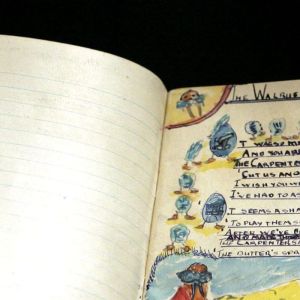 THE WALRUS
'T WAS SO K
AND YOU AR
THE CARPENTER
'CUT US AN
I WISH YOU
I'VE HAD TO AS
'T SEEMS A SHA
'TO PLAY THEM S
AFTER WE'VE B
AND MADE
THE CARPENTER
'THE BUTTER'S SPR